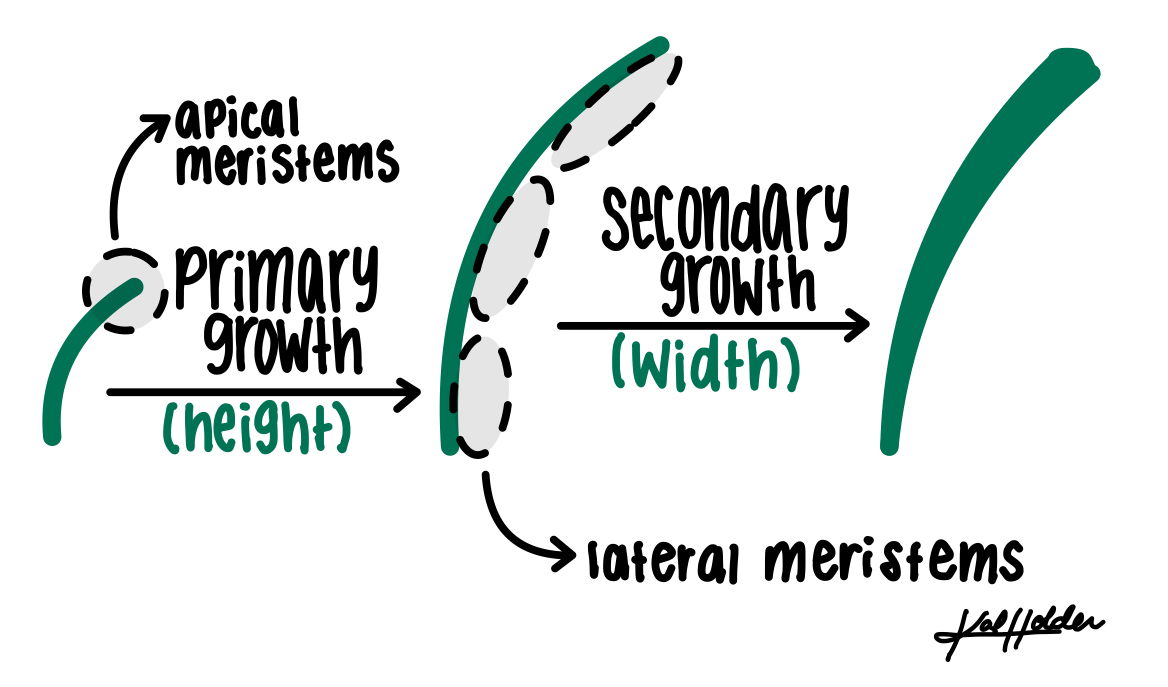 apical
meristems
primary
growth
(height)
secondary
growth
(width)
lateral meristems
Kal Holder